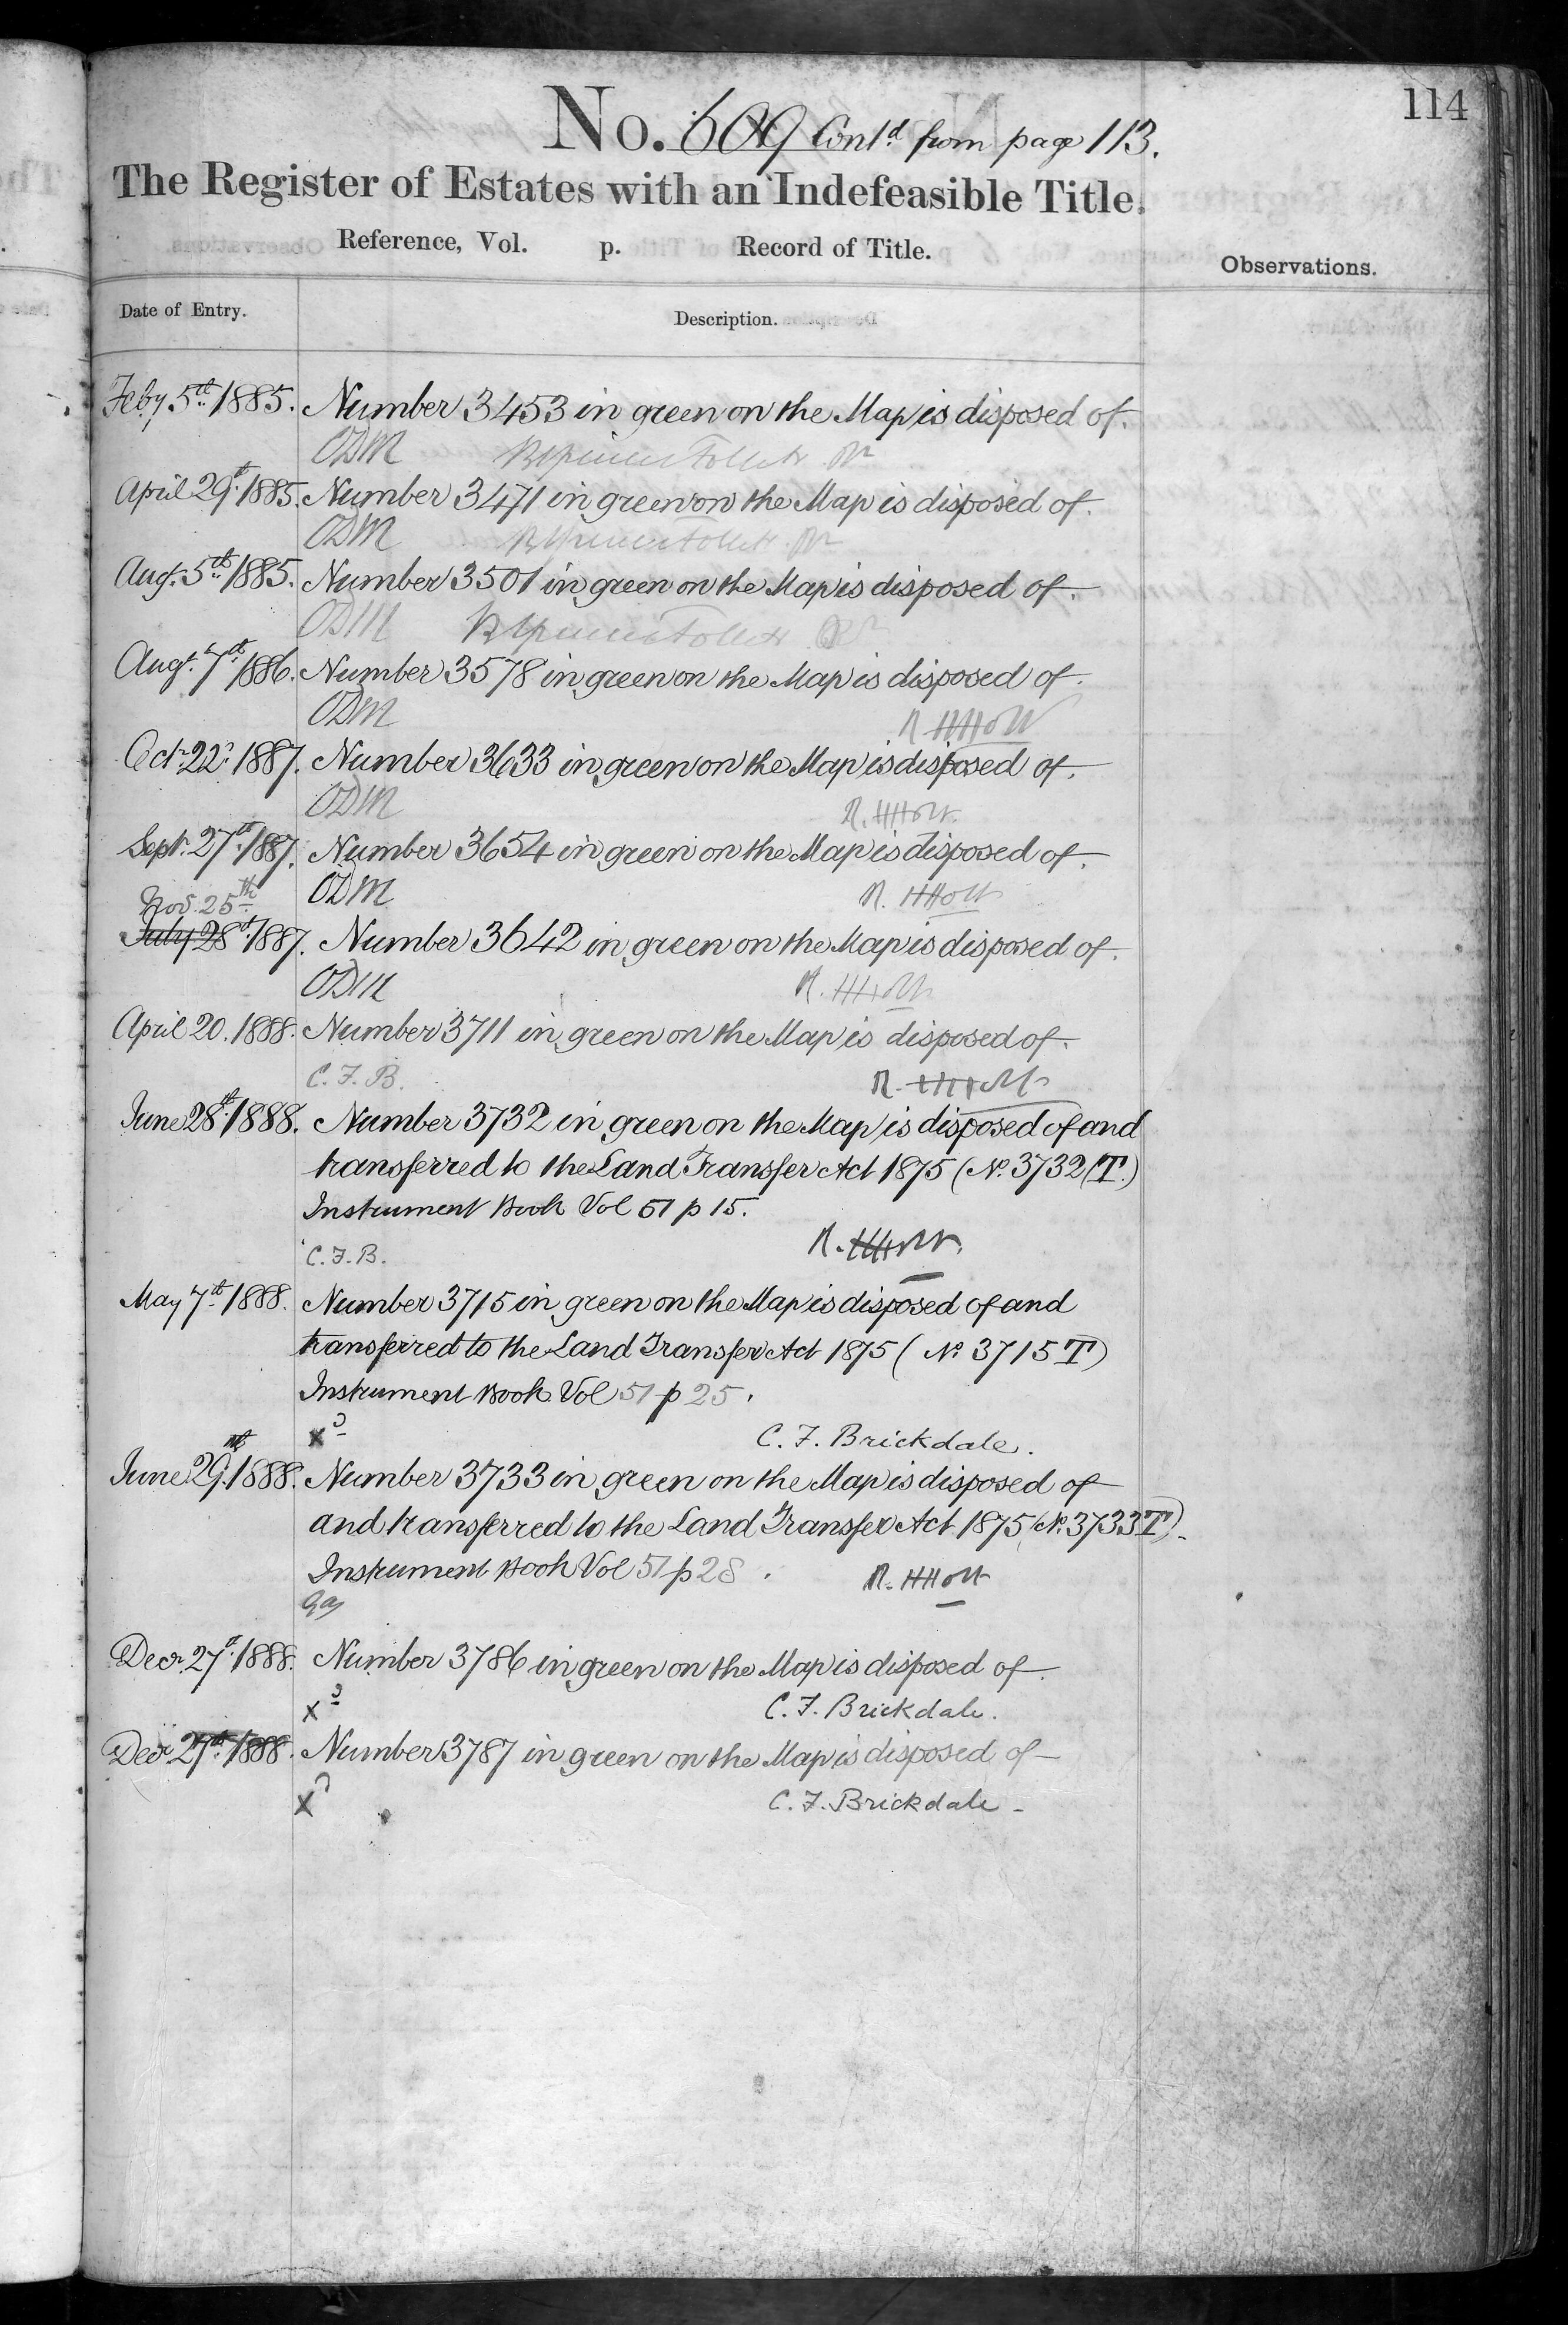 114
No. 609 Contd from page 113.
The Register of Estates with an Indefeasible Title.
Reference, Vol. p. Record of Title.
Observations.
Date of Entry.
Description.
Feby 5th 1885. Number 3453 in green on the Map is disposed of.
ODM
April 29th 1885. Number 3471 in green on the Map is disposed of.
ODM
Augt. 5th 1885. Number 3501 in green on the Map is disposed of.
ODM
Augt. 7th 1886. Number 3578 in green on the Map is disposed of.
ODM R. HHolt
Octr 22d 1887. Number 3633 in green on the Map is disposed of.
ODM R. HHolt
Septr. 27th 1887. Number 3654 in green on the Map is disposed of.
ODM R. HHolt
Nov. 25th
July 28th 1887. Number 3642 in green on the Map is disposed of.
ODM R. HHolt
April 20. 1888. Number 3711 in green on the Map is disposed of.
C. F. B. R. HHolt
June 28th 1888. Number 3732 in green on the Map is disposed of and
transferred to the Land Transfer Act 1875 (No. 3732 (T.)
Instrument Book Vol 51 p 15.
C. F. B. R. HHolt
May 7th 1888. Number 3715 in green on the Map is disposed of and
transferred to the Land Transfer Act 1875 (No. 3715 T)
Instrument Book Vol 51 p 25.
C. F. Brickdale.
June 29th 1888. Number 3733 in green on the Map is disposed of
and transferred to the Land Transfer Act 1875 (No. 3733 T).
Instrument Book Vol 51 p 28. R. HHolt
Decr. 27th 1888. Number 3786 in green on the Map is disposed of.
C. F. Brickdale.
Decr 27th 1888. Number 3787 in green on the Map is disposed of
C. F. Brickdale